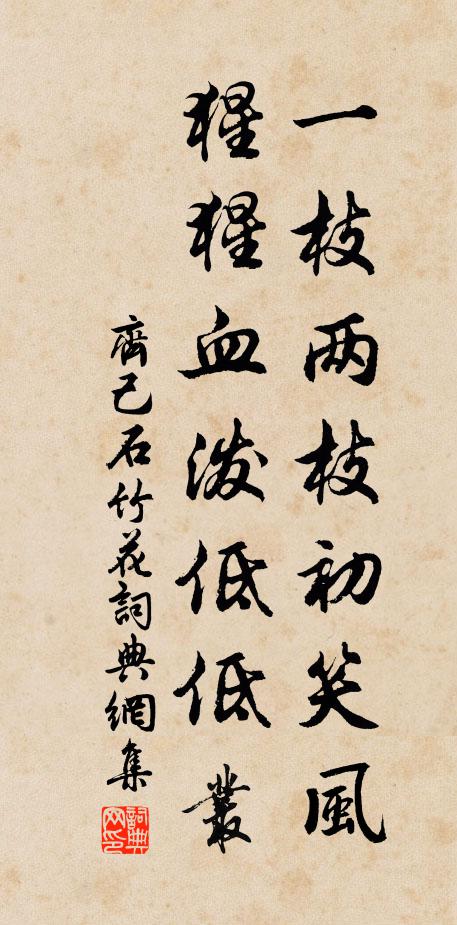 一枝两枝初笑風
猩猩血潑低低叢
齊己石竹花詞典網集
詞典网印